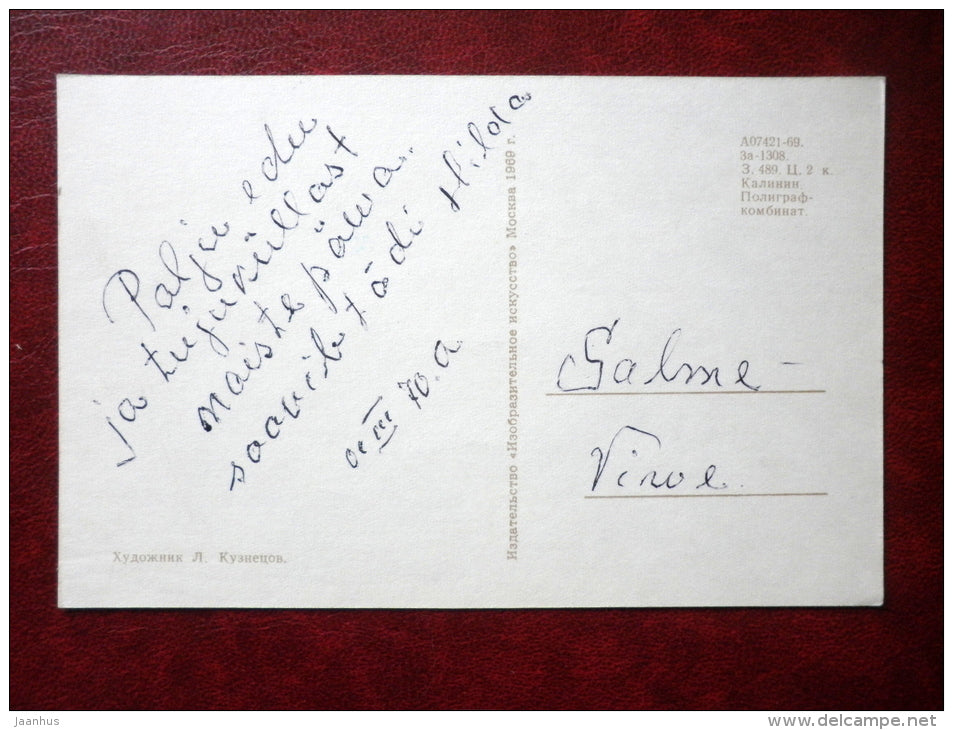 Palju edu
ja tujuküllast
naistepäeva.
soovib tädi Hilda
VIII 70.a
Художник Л. Кузнецов.
Издательство «Изобразительное искусство» Москва 1969 г.
А07421-69.
За-1308.
З. 489. Ц. 2 к.
Калинин.
Полиграф-
комбинат.
Salme
Virve.
jaanhus
www.delcampe.net